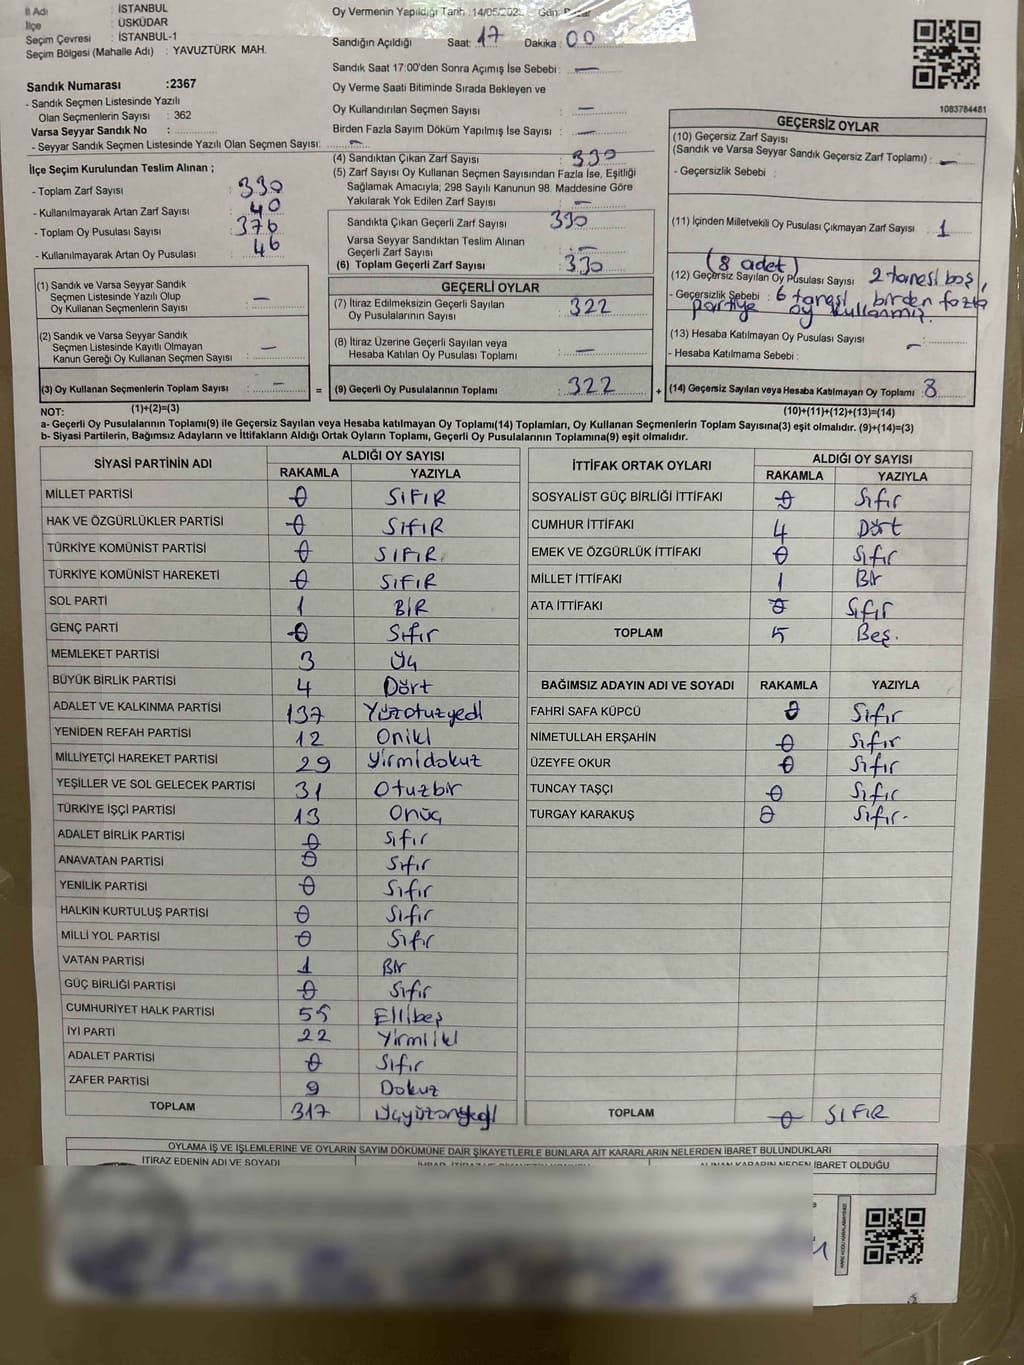 İl Adı : İSTANBUL
İlçe : ÜSKÜDAR
Seçim Çevresi : İSTANBUL-1
Seçim Bölgesi (Mahalle Adı) : YAVUZTÜRK MAH.
Sandık Numarası :2367
- Sandık Seçmen Listesinde Yazılı
Olan Seçmenlerin Sayısı : 362
Varsa Seyyar Sandık No :
- Seyyar Sandık Seçmen Listesinde Yazılı Olan Seçmen Sayısı: —
İlçe Seçim Kurulundan Teslim Alınan ;
- Toplam Zarf Sayısı : 330
- Kullanılmayarak Artan Zarf Sayısı : 40
- Toplam Oy Pusulası Sayısı : 376
- Kullanılmayarak Artan Oy Pusulası : 46
(1) Sandık ve Varsa Seyyar Sandık
Seçmen Listesinde Yazılı Olup
Oy Kullanan Seçmenlerin Sayısı : —
(2) Sandık ve Varsa Seyyar Sandık
Seçmen Listesinde Kayıtlı Olmayan
Kanun Gereği Oy Kullanan Seçmen Sayısı : —
(3) Oy Kullanan Seçmenlerin Toplam Sayısı : — =
Oy Vermenin Yapıldığı Tarih :14/05/202 Gün:
Sandığın Açıldığı Saat: 17 Dakika : 00
Sandık Saat 17:00'den Sonra Açılmış İse Sebebi : —
Oy Verme Saati Bitiminde Sırada Bekleyen ve
Oy Kullandırılan Seçmen Sayısı : —
Birden Fazla Sayım Döküm Yapılmış İse Sayısı : —
(4) Sandıktan Çıkan Zarf Sayısı : 330
(5) Zarf Sayısı Oy Kullanan Seçmen Sayısından Fazla İse, Eşitliği
Sağlamak Amacıyla; 298 Sayılı Kanunun 98. Maddesine Göre
Yakılarak Yok Edilen Zarf Sayısı : —
Sandıkta Çıkan Geçerli Zarf Sayısı 330
Varsa Seyyar Sandıktan Teslim Alınan
Geçerli Zarf Sayısı : —
(6) Toplam Geçerli Zarf Sayısı : 330
GEÇERLİ OYLAR
(7) İtiraz Edilmeksizin Geçerli Sayılan
Oy Pusulalarının Sayısı : 322
(8) İtiraz Üzerine Geçerli Sayılan veya
Hesaba Katılan Oy Pusulası Toplamı : —
(9) Geçerli Oy Pusulalarının Toplamı : 322 +
1083784481
GEÇERSİZ OYLAR
(10) Geçersiz Zarf Sayısı
(Sandık ve Varsa Seyyar Sandık Geçersiz Zarf Toplamı) : —
- Geçersizlik Sebebi :
(11) İçinden Milletvekili Oy Pusulası Çıkmayan Zarf Sayısı : 1
(8 adet)
(12) Geçersiz Sayılan Oy Pusulası Sayısı 2 tanesi boş,
- Geçersizlik Sebebi : 6 tanesi birden fazla
partiye oy kullanmış.
(13) Hesaba Katılmayan Oy Pusulası Sayısı : —
- Hesaba Katılmama Sebebi :
(14) Geçersiz Sayılan veya Hesaba Katılmayan Oy Toplamı : 8
NOT: (1)+(2)=(3) (10)+(11)+(12)+(13)=(14)
a- Geçerli Oy Pusulalarının Toplamı(9) ile Geçersiz Sayılan veya Hesaba katılmayan Oy Toplamı(14) Toplamları, Oy Kullanan Seçmenlerin Toplam Sayısına(3) eşit olmalıdır. (9)+(14)=(3)
b- Siyasi Partilerin, Bağımsız Adayların ve İttifakların Aldığı Ortak Oyların Toplamı, Geçerli Oy Pusulalarının Toplamına(9) eşit olmalıdır.
SİYASİ PARTİNİN ADI ALDIĞI OY SAYISI
RAKAMLA YAZIYLA
MİLLET PARTİSİ 0 SIFIR
HAK VE ÖZGÜRLÜKLER PARTİSİ 0 SIFIR
TÜRKİYE KOMÜNİST PARTİSİ 0 SIFIR
TÜRKİYE KOMÜNİST HAREKETİ 0 SIFIR
SOL PARTİ 1 BİR
GENÇ PARTİ 0 Sıfır
MEMLEKET PARTİSİ 3 Üç
BÜYÜK BİRLİK PARTİSİ 4 Dört
ADALET VE KALKINMA PARTİSİ 137 Yüzotuzyedi
YENİDEN REFAH PARTİSİ 12 Oniki
MİLLİYETÇİ HAREKET PARTİSİ 29 yirmidokuz
YEŞİLLER VE SOL GELECEK PARTİSİ 31 Otuzbir
TÜRKİYE İŞÇİ PARTİSİ 13 Onüç
ADALET BİRLİK PARTİSİ 0 Sıfır
ANAVATAN PARTİSİ 0 Sıfır
YENİLİK PARTİSİ 0 Sıfır
HALKIN KURTULUŞ PARTİSİ 0 Sıfır
MİLLİ YOL PARTİSİ 0 Sıfır
VATAN PARTİSİ 1 Bir
GÜÇ BİRLİĞİ PARTİSİ 0 Sıfır
CUMHURİYET HALK PARTİSİ 55 Ellibeş
İYİ PARTİ 22 Yirmiiki
ADALET PARTİSİ 0 Sıfır
ZAFER PARTİSİ 9 Dokuz
TOPLAM 317 Üçyüzonyedi
İTTİFAK ORTAK OYLARI ALDIĞI OY SAYISI
RAKAMLA YAZIYLA
SOSYALİST GÜÇ BİRLİĞİ İTTİFAKI 0 Sıfır
CUMHUR İTTİFAKI 4 Dört
EMEK VE ÖZGÜRLÜK İTTİFAKI 0 Sıfır
MİLLET İTTİFAKI 1 Bir
ATA İTTİFAKI 0 Sıfır
TOPLAM 5 Beş.
BAĞIMSIZ ADAYIN ADI VE SOYADI RAKAMLA YAZIYLA
FAHRİ SAFA KÜPCÜ 0 Sıfır
NİMETULLAH ERŞAHİN 0 Sıfır
ÜZEYFE OKUR 0 Sıfır
TUNCAY TAŞÇI 0 Sıfır
TURGAY KARAKUŞ 0 Sıfır.
TOPLAM 0 SIFIR
OYLAMA İŞ VE İŞLEMLERİNE VE OYLARIN SAYIM DÖKÜMÜNE DAİR ŞİKAYETLERLE BUNLARA AİT KARARLARIN NELERDEN İBARET BULUNDUKLARI
İTİRAZ EDENİN ADI VE SOYADI ALINAN KARARIN NEDEN İBARET OLDUĞU